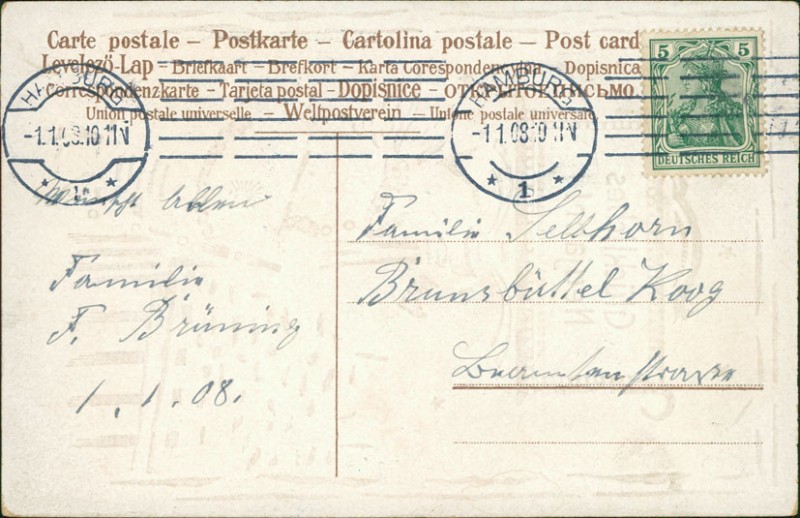 Carte postale – Postkarte – Cartolina postale – Post card
Levelező-Lap – Briefkaart – Brefkort – Karta Corespondencyjna – Dopisnica
Correspondenzkarte – Tarjeta postal – Dopisnice – ОТКРЫТОЕ ПИСЬМО.
Union postale universelle – Weltpostverein – Unione postale universare.
HAMBURG
-1.1.08.10-11 N
* 1 *
HAMBURG
-1.1.08.10-11 N
* 1 *
5 5
DEUTSCHES REICH
Wünscht Allen
Familie
F. Brüning
1.1.08.
Familie Sellhorn
Brunsbüttel Koog
Beamtenstrasse